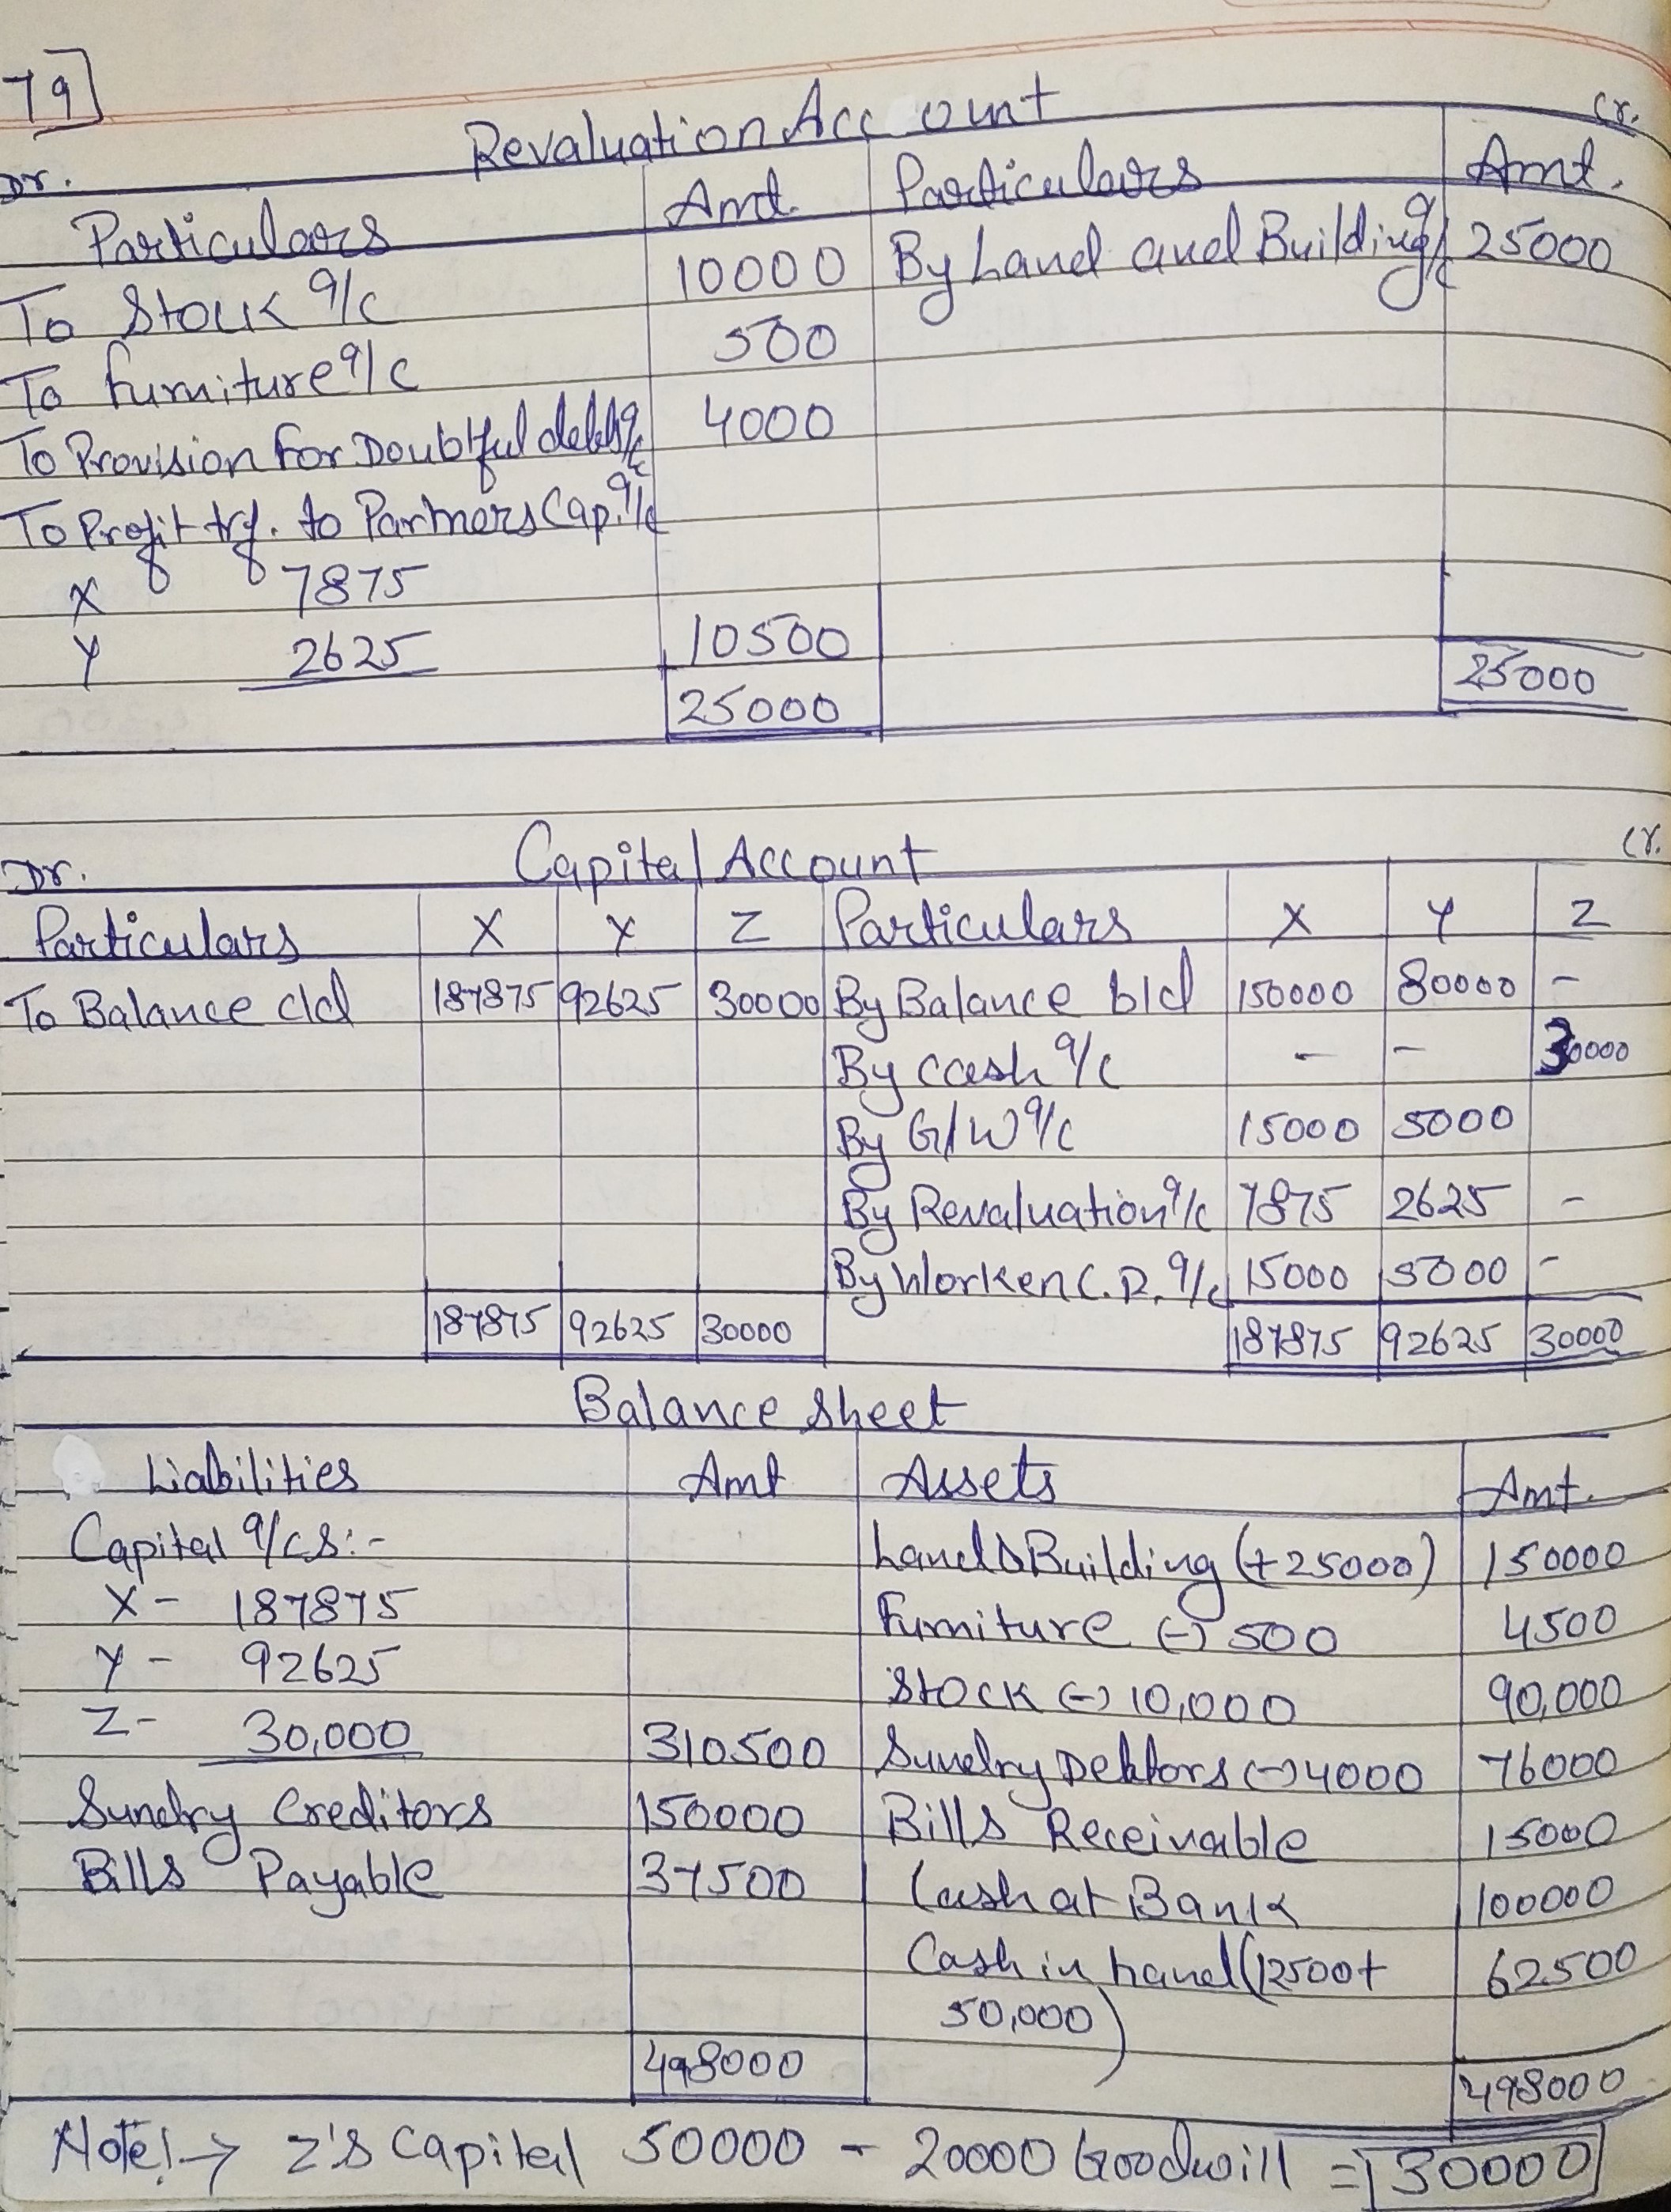 79]
Revaluation Account
Dr. Cr.
Particulars Amt. Particulars Amt.
To Stock a/c 10000 By Land and Building a/c 25000
To furniture a/c 500
To Provision For Doubtful debts a/c 4000
To Profit trf. to Partners Cap. a/c
X 7875
Y 2625 10500
25000 25000
Capital Account
Dr. Cr.
Particulars X Y Z Particulars X Y Z
To Balance c/d 187875 92625 30000 By Balance b/d 150000 80000 -
By cash a/c - - 30000
By G/W a/c 15000 5000
By Revaluation a/c 7875 2625 -
By Worken C.R. a/c 15000 5000 -
187875 92625 30000 187875 92625 30000
Balance sheet
Liabilities Amt Assets Amt.
Capital a/cs:- Land & Building (+25000) 150000
X - 187875 Furniture (-) 500 4500
Y - 92625 Stock (-) 10,000 90,000
Z - 30,000 310500 Sundry Debtors (-) 4000 76000
Sundry Creditors 150000 Bills Receivable 15000
Bills Payable 37500 Cash at Bank 100000
Cash in hand (12500+ 62500
50,000)
498000 498000
Note:→ Z's Capital 50000 - 20000 Goodwill = 30000